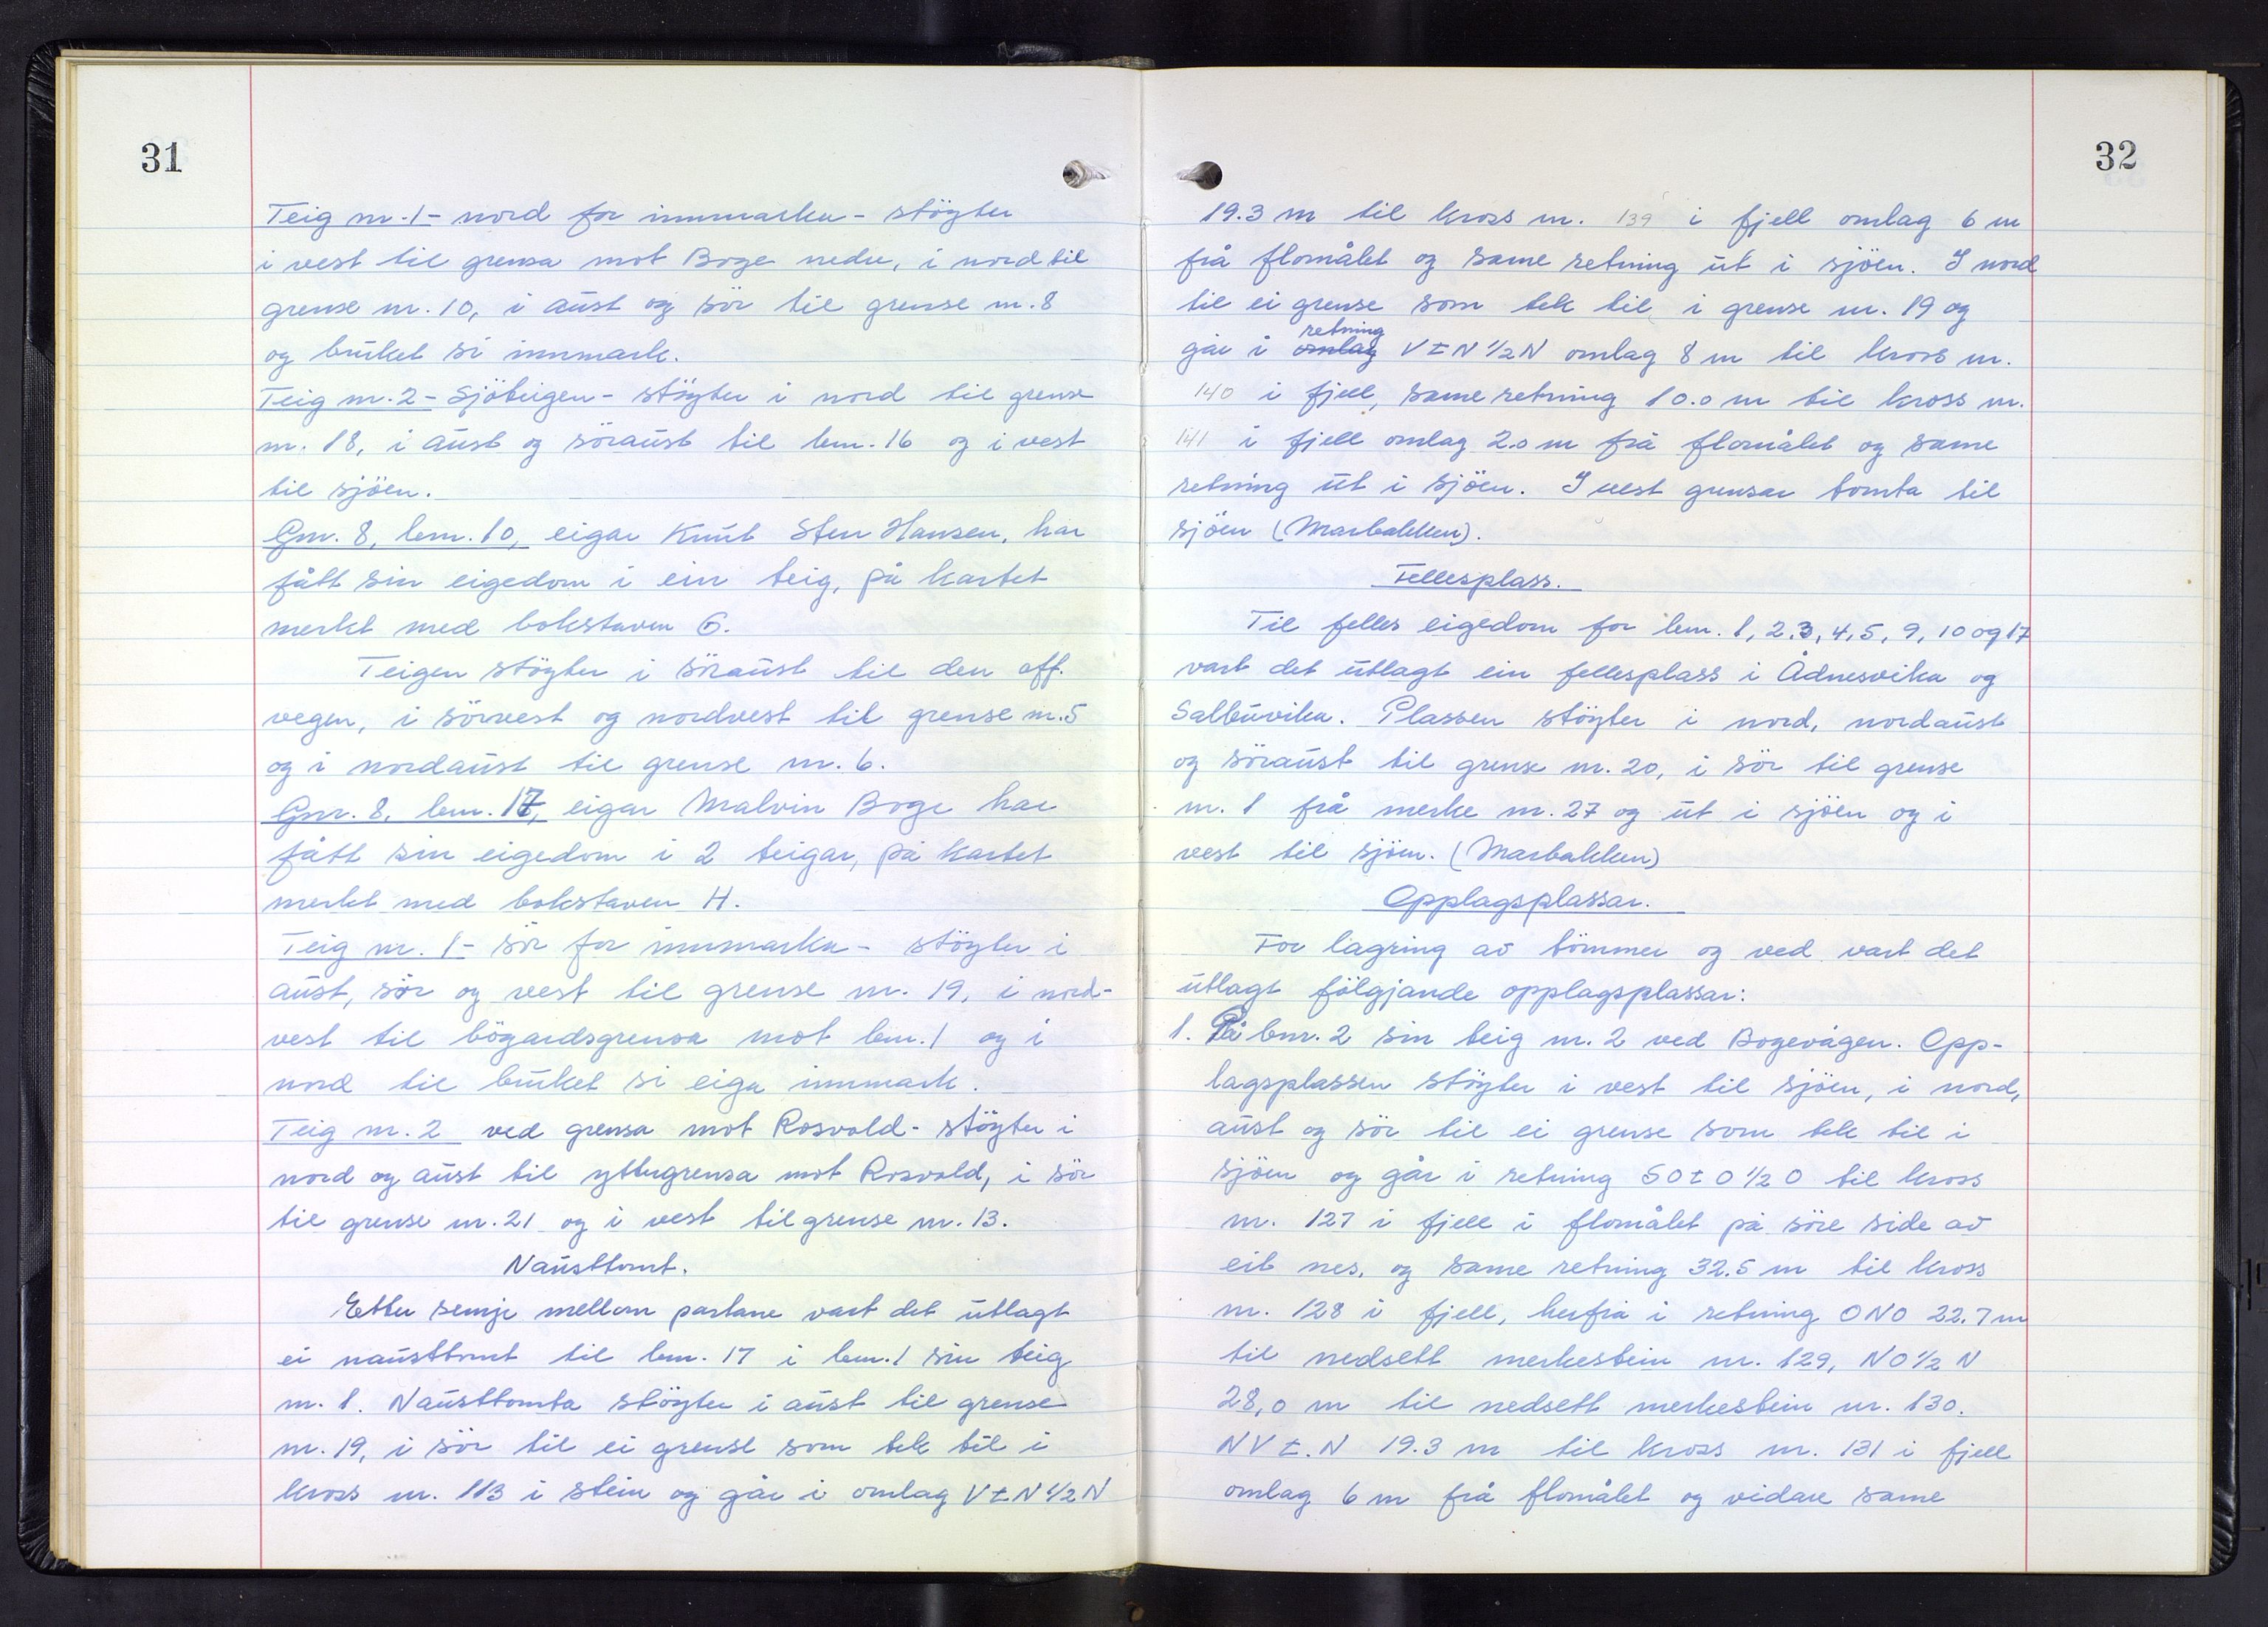 31
Teig nr. 1 - nord for innmarka - stöyter
i vest til grensa mot Boge nedre, i nord til
grense nr. 10, i aust og sör til grense nr. 8
og bruket si innmark.
Teig nr. 2 - Sjöteigen - stöyter i nord til grense
nr. 18, i aust og söraust til bnr. 16 og i vest
til sjöen.
Gnr. 8, bnr. 10, eigar Knut Sten Hansen, har
fått sin eigedom i ein teig, på kartet
merkt med bokstaven G.
Teigen stöyter i söraust til den off.
vegen, i sörvest og nordvest til grense nr. 5
og i nordaust til grense nr. 6.
Gnr. 8, bnr. 17, eigar Malvin Boge har
fått sin eigedom i 2 teigar, på kartet
merkt med bokstaven H.
Teig nr. 1 - sör for innmarka - stöyter i
aust, sör og vest til grense nr. 19, i nord-
vest til bögardsgrensa mot bnr. 1 og i
nord til bruket si eiga innmark.
Teig nr. 2 ved grensa mot Rosvold - stöyter i
nord og aust til yttergrensa mot Rosvold, i sör
til grense nr. 21 og i vest til grense nr. 13.
Nausttomt.
Etter semje mellom partane vart det utlagt
ei nausttomt til bnr. 17 i bnr. 1 sin teig
nr. 1. Nausttomta stöyter i aust til grense
nr. 19, i sör til ei grense som tek til i
kross nr. 113 i stein og går i omlag V t N 1/2 N
32
19.3 m til kross nr. 139 i fjell omlag 6 m
frå flomålet og same retning ut i sjöen. I nord
til ei grense som tek til i grense nr. 19 og
retning
går i omlag V t N 1/2 N omlag 8 m til kross nr.
140 i fjell, same retning 10.0 m til kross nr.
141 i fjell omlag 2.0 m frå flomålet og same
retning ut i sjöen. I vest grensar tomta til
sjöen (Marbakken).
Fellesplass.
Til felles eigedom for bnr. 1, 2, 3, 4, 5, 9, 10 og 17
vart det utlagt ein fellesplass i Ådnesvika og
Salbuvika. Plassen stöyter i nord, nordaust
og söraust til grense nr. 20, i sör til grense
nr. 1 frå merke nr. 27 og ut i sjöen og i
vest til sjöen. (Marbakken)
Opplagsplassar.
For lagring av tömmer og ved vart det
utlagt fölgjande opplagsplassar:
1. På bnr. 2 sin teig nr. 2 ved Bogevågen. Opp-
lagsplassen stöyter i vest til sjöen, i nord,
aust og sör til ei grense som tek til i
sjöen og går i retning SO t O 1/2 O til kross
nr. 127 i fjell i flomålet på söre side av
eit nes, og same retning 32.5 m til kross
nr. 128 i fjell, herfrå i retning ONO 22.7 m
til nedsett merkestein nr. 129, NO 1/2 N
28,0 m til nedsett merkestein nr. 130.
NV t. N 19.3 m til kross nr. 131 i fjell
omlag 6 m frå flomålet og vidare same